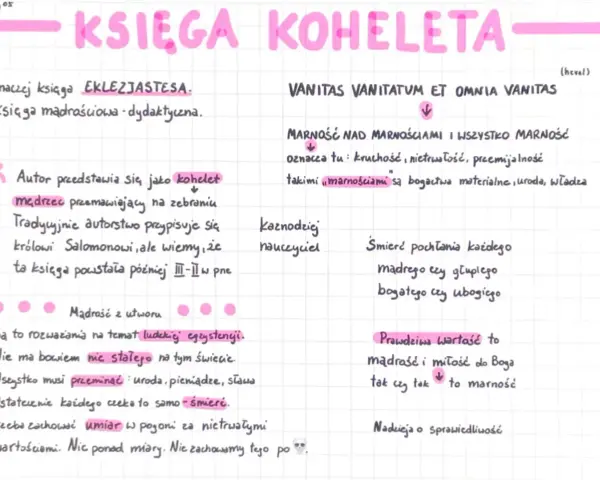 KSIĘGA KOHELETA
(hevel)
księga EKLEZJASTESA.
VANITAS VANITATUM ET OMNIA VANITAS
księga mądrościowa - dydaktyczna.
MARNOŚĆ NAD MARNOŚCIAMI I WSZYSTKO MARNOŚĆ
oznacza tu: kruchość, nietrwałość, przemijalność
takimi "marnościami" są bogactwa materialne, uroda, władza
Autor przedstawia się jako kohelet
mędrzec przemawiający na zebraniu
Tradycyjnie autorstwo przypisuje się
królowi Salomonowi, ale wiemy, że
ta księga powstała później III-II w pne
kaznodziej
nauczyciel
Śmierć pochłania każdego
mądrego czy głupiego
bogatego czy ubogiego
Mądrość z utworu
są to rozważania na temat ludzkiej egzystencji.
nie ma bowiem nic stałego na tym świecie.
wszystko musi przeminąć: uroda, pieniądze, sława
ostatecznie każdego czeka to samo - śmierć.
trzeba zachować umiar w pogoni za nietrwałymi
wartościami. Nic ponad miarę. Nie zachowamy tego po 💀.
Prawdziwa wartość to
mądrość i miłość do Boga
tak czy tak to marność
Nadzieja o sprawiedliwość